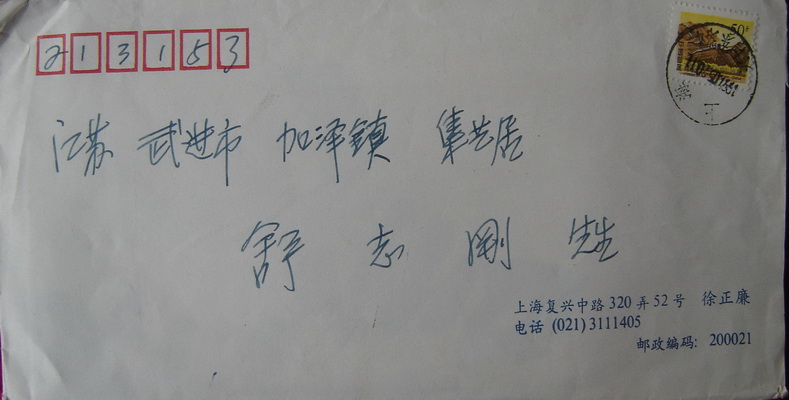 213153
50分
江苏 武进市 加泽镇 集艺居
舒志刚 先生
上海复兴中路 320 弄 52 号 徐正廉
电话 (021) 3111405
邮政编码: 200021